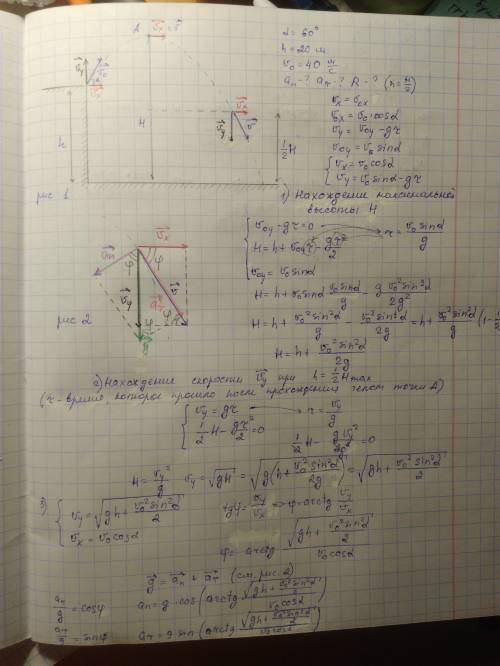 α = 60°
h = 20 м
v₀ = 40 м/с
aₙ - ? aτ - ? R - ? (h = H/2)
A
vₓ = v
vₓ = v₀ₓ
v₀ₓ = v₀ · cosα
v_y = v₀y - gτ
v₀y = v₀ sinα
{ vₓ = v₀ cosα
v_y = v₀ sinα - gτ
h
H
½H
рис 1
1) Нахождение максимальной
высоты H
{ v₀y - gτ = 0 → τ = v₀ sinα / g
H = h + v₀y τ - gτ²/2
v₀y = v₀ sinα
H = h + v₀ sinα v₀ sinα / g - g v₀² sin²α / 2g²
H = h + v₀² sin²α / g - v₀² sin²α / 2g = h + v₀² sin²α / g (1 -
H = h + v₀² sin²α / 2g
рис 2
2) Нахождение скорости v_y при h = ½ H max
(τ - время, которое прошло после прохождения телом точки A)
{ v_y = gτ → τ = v_y / g
½H - gτ²/2 = 0
½H - g v_y² / 2g² = 0
H = v_y² / g v_y = √(gH) = √(g(h + v₀² sin²α / 2g)) = √(gh + v₀² sin²α / 2)
3) { v_y = √(gh + v₀² sin²α / 2)
vₓ = v₀ cosα
tgφ = v_y / vₓ => φ = arctg v_y / vₓ
φ = arctg √(gh + v₀² sin²α / 2) / v₀ cosα
g = aₙ + aτ (см. рис. 2)
aₙ / g = cosφ aₙ = g · cos(arctg √(gh + v₀² sin²α / 2) / v₀ cosα)
aτ / g = sinφ aτ = g · sin(arctg √(gh + v₀² sin²α / 2) / v₀ cosα)